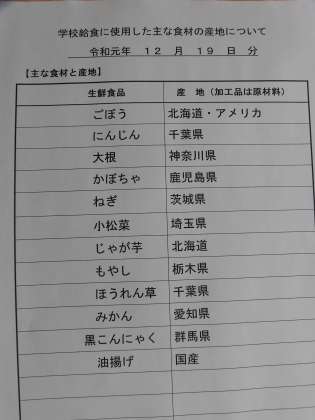 学校給食に使用した主な食材の産地について
令和元年 12 月 19 日 分
【主な食材と産地】
生鮮食品 産 地（加工品は原材料）
ごぼう 北海道・アメリカ
にんじん 千葉県
大根 神奈川県
かぼちゃ 鹿児島県
ねぎ 茨城県
小松菜 埼玉県
じゃが芋 北海道
もやし 栃木県
ほうれん草 千葉県
みかん 愛知県
黒こんにゃく 群馬県
油揚げ 国産